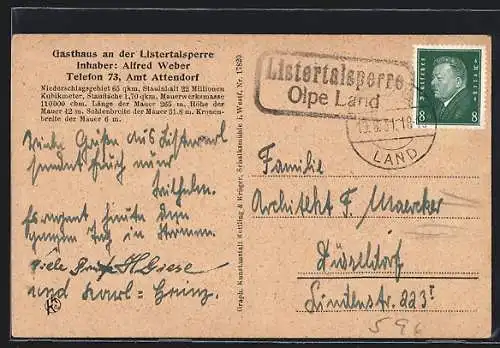 Gasthaus an der Listertalsperre
Inhaber: Alfred Weber
Telefon 73, Amt Attendorf
Niederschlagsgebiet 65 qkm, Stauinhalt 22 Millionen
Kubikmeter, Staufläche 1,70 qkm, Mauerwerksmasse
110000 cbm. Länge der Mauer 265 m, Höhe der
Mauer 42 m. Sohlenbreite der Mauer 31.8 m. Kronen-
breite der Mauer 6 m.
Viele Grüße aus
sendet Euch
Wilhelm.
Es regnet heute den
ganzen Tag in Strömen.
Viele
und Karl-Heinz.
Graph. Kunstanstalt Kettling & Krüger, Schalksmühle i. Westf. Nr. 17829
Listertalsperre
Olpe Land
LAND
Deutsches Reich
8 8
Familie
Architekt F. Maercker
Düsseldorf
Lindenstr. 223 I
596